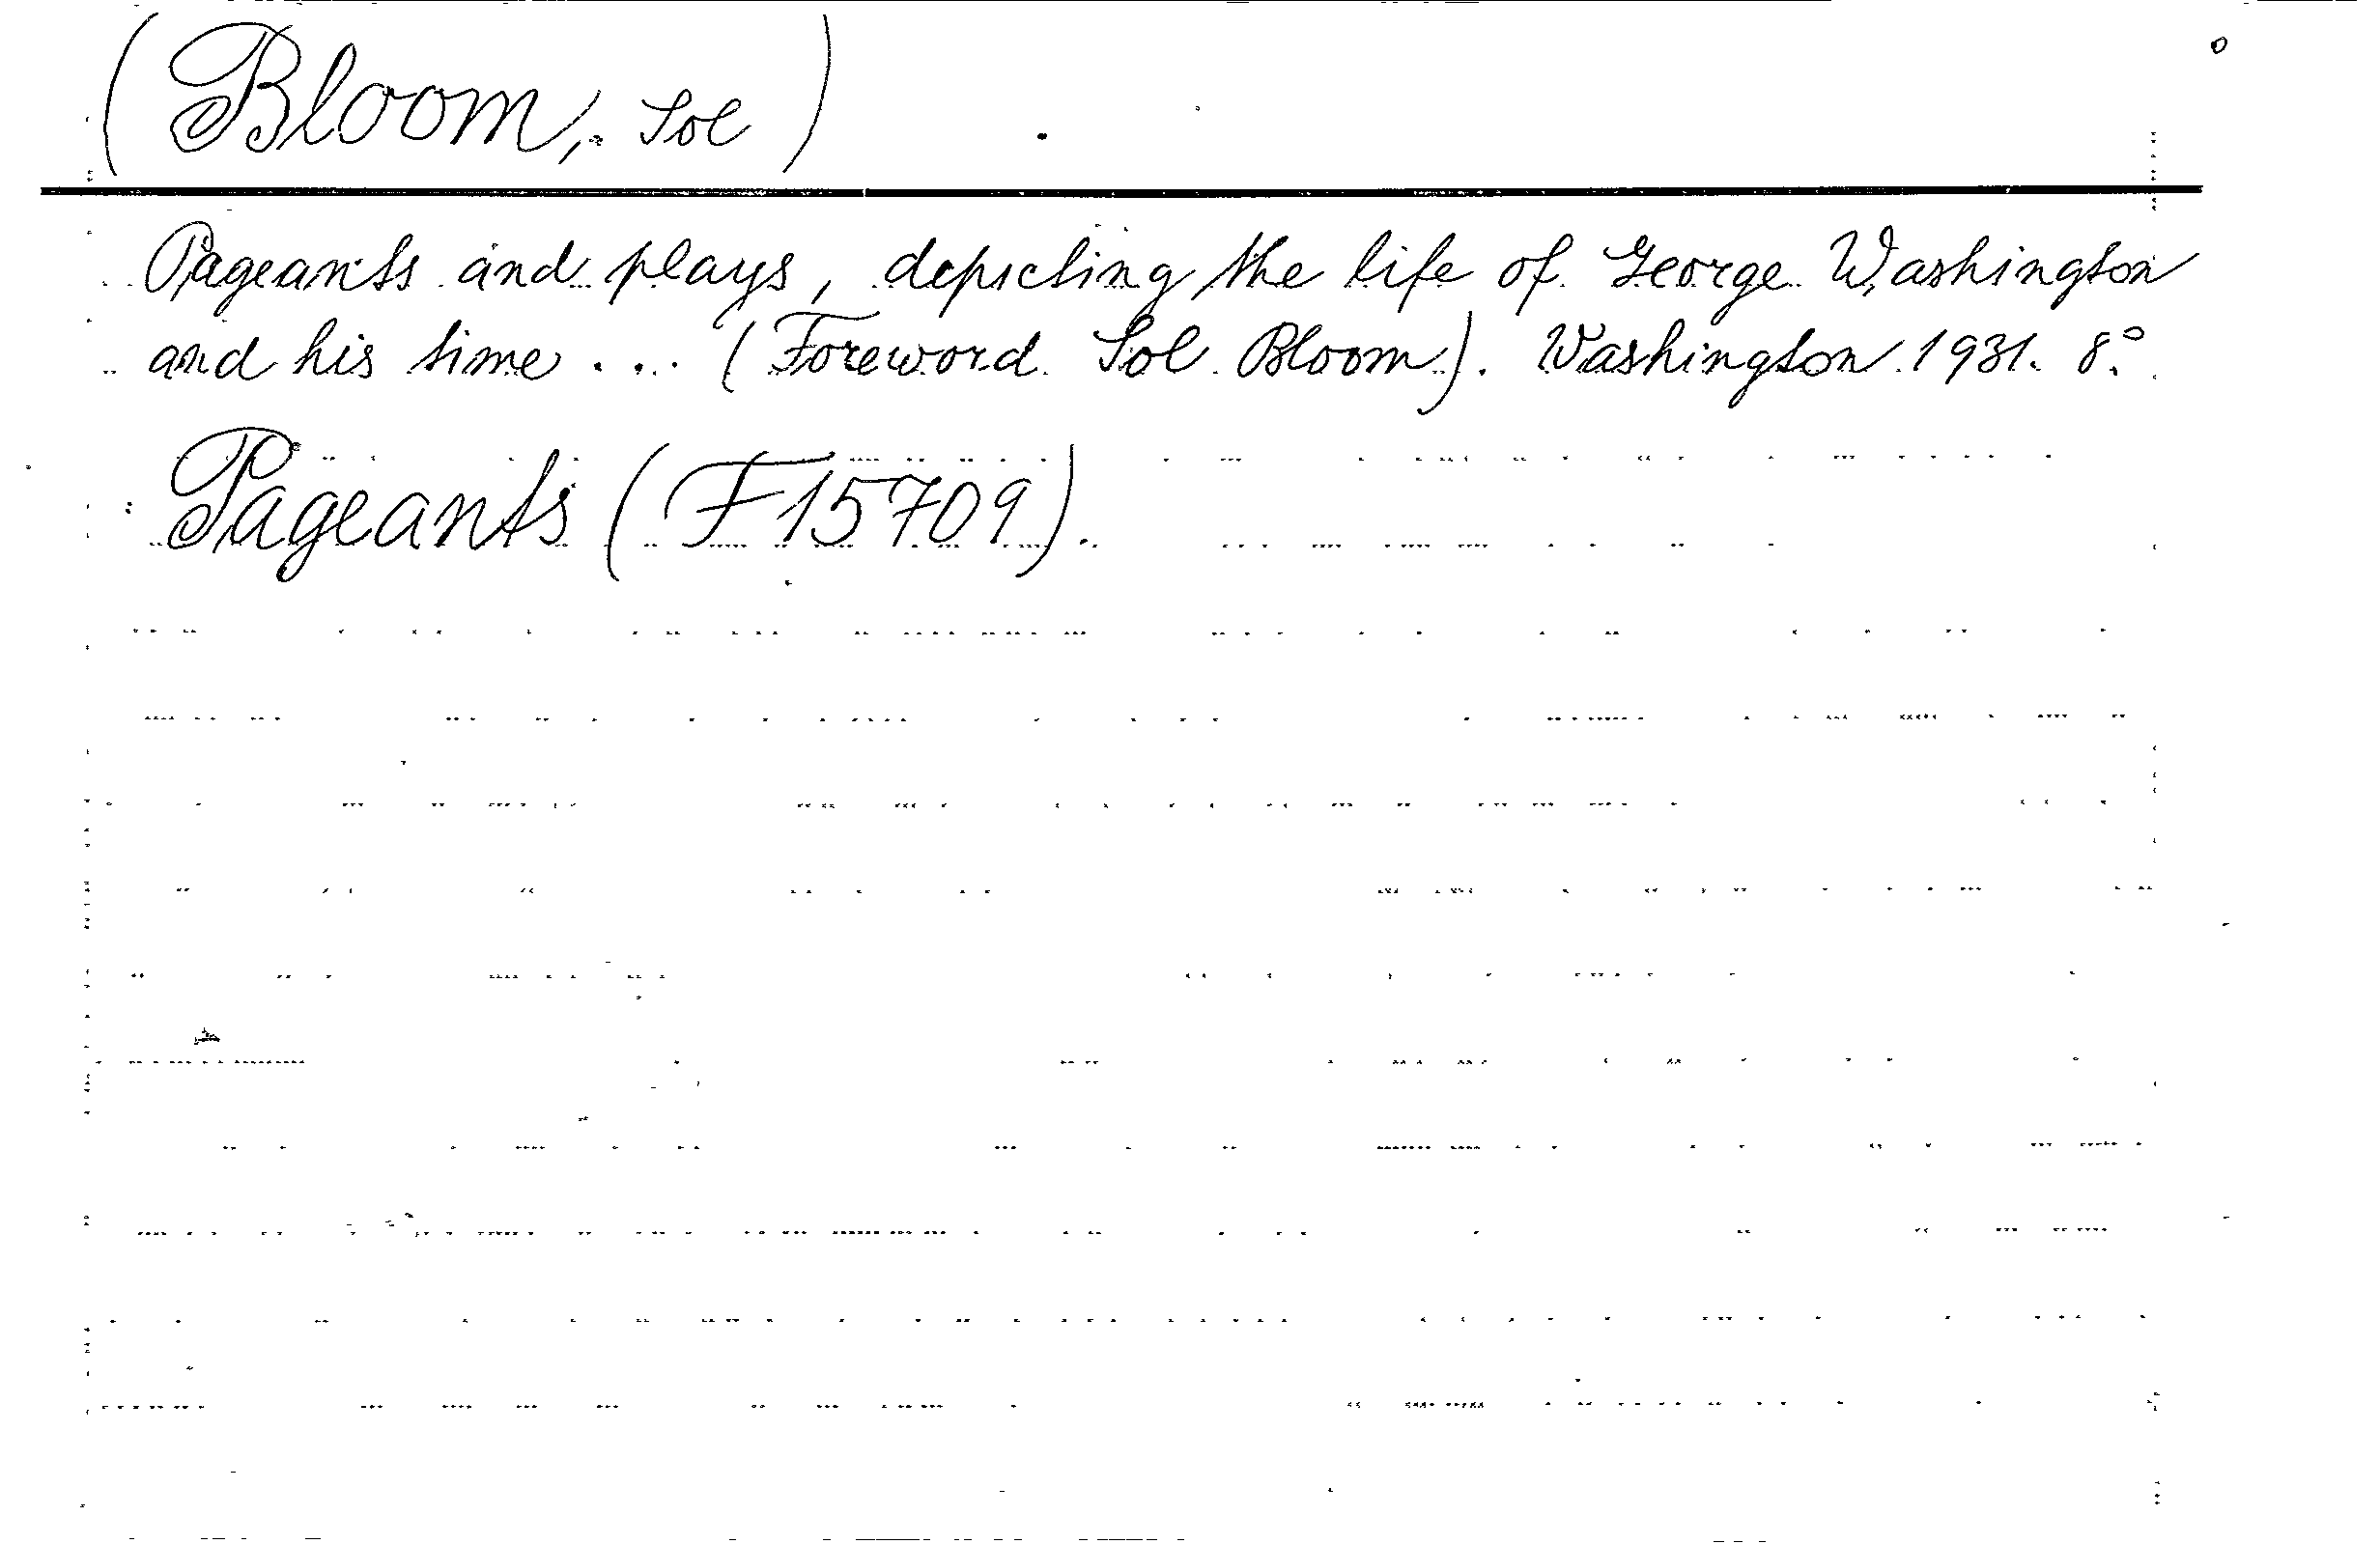 (Bloom, Sol)
Pageants and plays, depicting the life of George Washington
and his time ... (Foreword Sol Bloom). Washington 1931. 8.°
Pageants (F 15709).